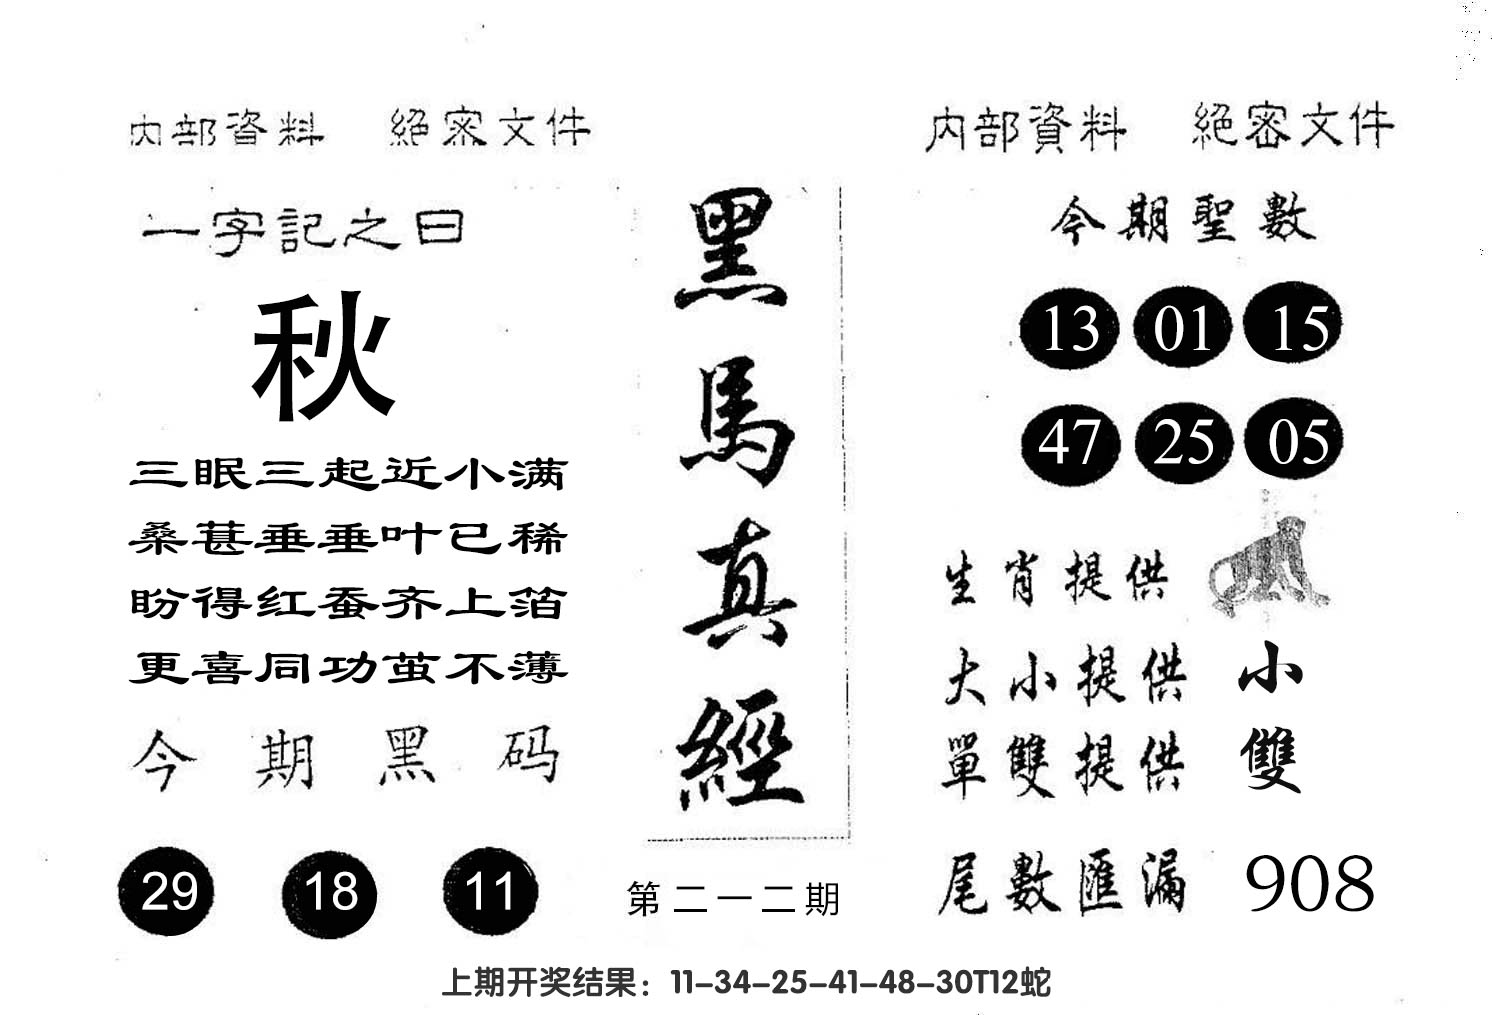 内部資料 絕密文件
一字記之曰
秋
三眠三起近小满
桑葚垂垂叶已稀
盼得红蚕齐上箔
更喜同功茧不薄
今期黑码
29 18 11
黑馬真經
第二一二期
内部資料 絕密文件
今期聖數
13 01 15
47 25 05
生肖提供
大小提供 小
單雙提供 雙
尾數匯漏 908
上期开奖结果：11-34-25-41-48-30T12蛇